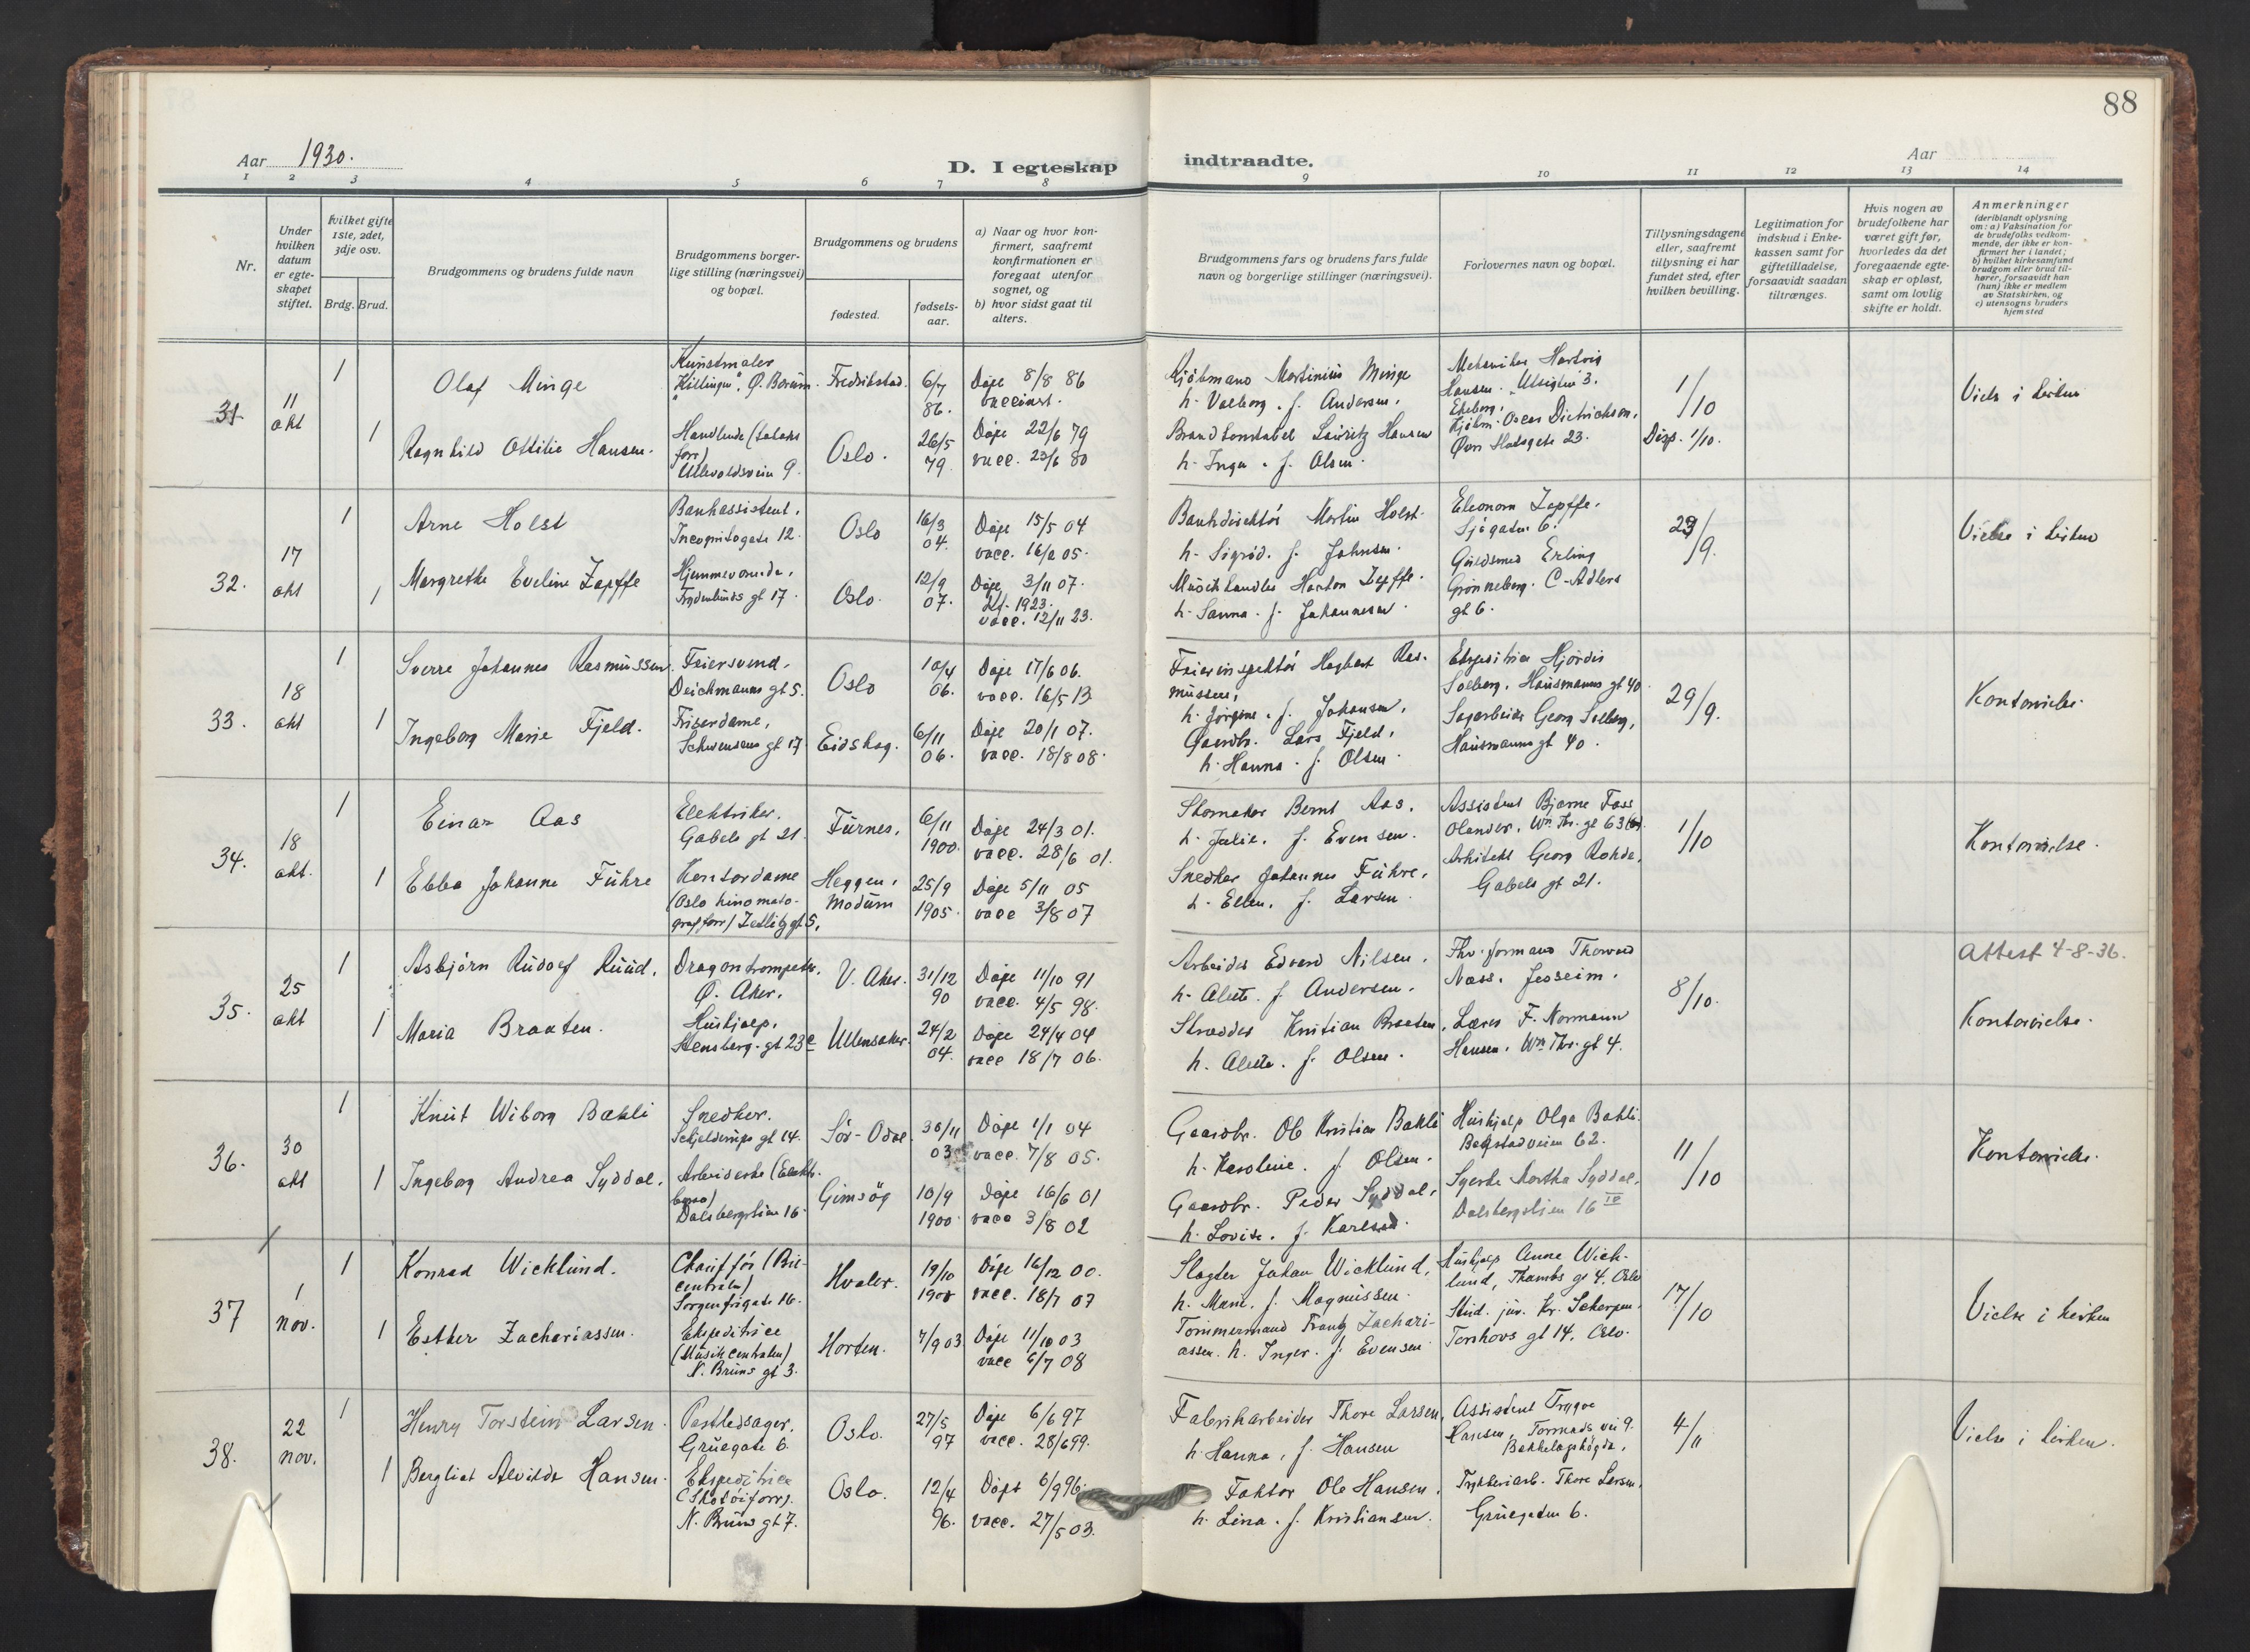 88
Aar 1930.
D. I egteskap
indtraadte.
Aar
1 2 3 4 5 6 7 8 9 10 11 12 13 14
Nr.
Under hvilken datum er egte-skapet stiftet.
hvilket gifte 1ste, 2det, 3dje osv.
Brdg. Brud.
Brudgommens og brudens fulde navn
Brudgommens borger-
lige stilling (næringsvei)
og bopæl.
Brudgommens og brudens
fødested.
fødsels-
aar.
a) Naar og hvor kon-
firmert, saafremt
konfirmationen er
foregaat utenfor
sognet, og
b) hvor sidst gaat til
alters.
Brudgommens fars og brudens fars fulde
navn og borgerlige stillinger (næringsvei).
Forlovernes navn og bopæl.
Tillysningsdagene
eller, saafremt
tillysning ei har
fundet sted, efter
hvilken bevilling.
Legitimation for
indskud i Enke-
kassen samt for
giftetilladelse,
forsaavidt saadan
tiltrænges.
Hvis nogen av
brudefolkene har
været gift før,
hvorledes da det
foregaaende egte-
skap er opløst,
samt om lovlig
skifte er holdt.
Anmerkninger
(deriblandt oplysning
om: a) Vaksination for
de brudefolks vedkom-
mende, der ikke er kon-
firmert her i landet;
b) hvilket kirkesamfund
brudgom eller brud til-
hører, forsaavidt han
(hun) ikke er medlem
av Statskirken, og
c) utensogns bruders
hjemsted
31
11
okt
1
Olaf Minge
Kunstmaler
Ø. Bærum.
Fredrikstad.
6/7
86.
Døpt 8/8 86
Kjøbmand Martinius Minge
h. Valborg. f. Andersen.
Hartvig
Hansen. Utsigten 3.
Ekeberg.
1/10
Disp. 1/10.
1
Ragnhild Ottilie Hansen.
Handlende (tobaks
forr)
Ullevoldsveien 9.
Oslo.
26/5
79
Døpt 22/6 79
vacc. 23/6 80
Brandkonstabel Lauritz Hansen
h. Inga. f. Olsen.
Kjøbm. Oscar Dietrichson.
Øvre Slotsgate 23.
Vielse i kirken
32.
17
okt
1
Arne Holst
Bankassistent.
Incognitogate 12.
Oslo
16/3
04.
Døpt 15/5 04
Bankdirektør Martin Holst.
h. Sigrid. f. Johnsen.
Eleonora Zapffe.
Sjøgaten 6.
29/9.
Vielse i kirken
1
Margrethe Eveline Zapffe
Hjemmeværende.
Frydenlunds gt 17.
Oslo.
12/9
07.
Døpt 3/11 07.
Kf. 1923.
vacc. 12/11 23.
Musikhandler Zapffe.
h. Sanna. f. Johannesen.
Guldsmed Erling
Grønneberg. C-Adlers
gt 6.
33.
18
okt
1
Sverre Johannes Rasmussen.
Feiersvend.
Deichmanns gt 5.
Oslo
10/4
06.
Døpt 17/6 06.
vacc. 16/5 13
Feierinspektør Hagbart Ras-
mussen,
h. Jørgine. f. Johansen.
Ekspeditrice Hjørdis
Solberg. Hausmanns gt 40.
29/9.
Kontorvielse.
1
Ingeborg Marie Fjeld.
Friserdame,
Schwensens gt 17
Eidskog.
6/11
06.
Døpt 20/1 07.
vacc. 18/8 08.
Gaardbr. Lars Fjeld,
h. Hanna. f. Olsen.
Sagarbeider Georg Solberg,
Hausmanns gt 40.
34.
18
okt.
1
Einar Aas
Elektriker.
Gabels gt 21.
Furnes.
6/11
1900.
Døpt 24/3 01.
vacc. 28/6 01.
Skomaker Bernt Aas.
h. Julie. f. Evensen.
Assistent Bjarne Foss
Olander. Wm. Thr. gt 63
1/10
Kontorvielse.
1
Ebba Johanne Fuhre
Kontordame
(Oslo kinomato-
grafforr) Zetlitz gt 5.
Heggen,
Modum
25/9
1905.
Døpt 5/11 05
vacc 3/8 07
Snedker Johannes Fuhre.
h. Ellen. f. Larsen
Arkitekt Georg Rohde.
Gabels gt 21.
35.
25
okt
1
Asbjørn Rudolf Ruud.
Dragontrompeter.
Ø. Aker.
V. Aker.
31/12
90
Døpt 11/10 91
vacc. 4/5 98.
Arbeider Edvard Nilsen.
h. Alette. f Andersen.
Thorvald
Næss. Jessheim.
8/10.
Attest 4-8-36.
1
Maria Braaten.
Hushjælp.
Stensberg. gt 23 c
Ullensaker.
24/2
04.
Døpt 24/4 04
vacc 18/7 06.
Skrædder Kristian Braaten.
h. Alette. f. Olsen.
Lærer F. Normann
Hansen. Wm Thr. gt 4.
Kontorvielse.
36.
30
okt
1
Knut Wiborg Bakli
Snedker.
Schjelderups gt 14.
Sør-Odal
30/11
03
Døpt 1/1 04
vacc. 7/8 05.
Gaardbr. Ole Kristian Bakli
h. Karoline. f. Olsen.
Hushjælp Olga Bakli.
Bogstadveien 62.
11/10
Kontorvielse.
1
Ingeborg Andrea Syddal.
Arbeiderske (Elektr.
Dalsbergstien 16.
Gimsøy
10/9
1900
Døpt 16/6 01
vacc 3/8 02
Gaardbr. Peder Syddal,
h. Lovise. f. Karlsen.
Syerske Martha Syddal.
Dalsbergstien 16 IV
37
1
nov.
1
Konrad Wicklund.
Chauffør (Bil-
centralen)
Sorgenfrigate 16.
Hvaler.
19/10
1900
Døpt 16/12 00.
vacc. 18/7 07
Slagter Johan Wicklund,
h. Marie. f. Magnussen.
Hushjælp Anna Wick-
lund, Thambs gt 4. Oslo
17/10
Vielse i kirken
1
Esther Zachariassen.
Ekspeditrice
(Musikcentralen)
N. Bruns gt 3.
Horten.
7/9 03
Døpt 11/10 03
vacc 6/7 08
Tømmermand Frantz Zachari-
assen. h. Inger. f. Evensen
Stud. jur. Kr. Scharpen.
Torshovs gt 14. Oslo.
38.
22
nov.
1
Henry Torstein Larsen.
Postledsager.
Gruegate 6.
Oslo.
27/5
97
Døpt 6/6 97
vacc. 28/6 99.
Fabrikarbeider Thore Larsen,
h. Hanna, f. Hansen
Assistent Trygve
Hansen, Tormods vei 9.
Bekkelagshøgda.
4/11
Vielse i kirken.
1
Bergliot Alvilde Hansen.
Ekspeditrice
(Skotøiforr).
N. Bruns gt 7.
Oslo.
12/4
96.
Døpt 6/9 96.
vacc. 27/5 03.
Faktor Ole Hansen.
h. Lina. f. Kristiansen.
Trykkeriarb. Thore Larsen,
Gruegaten 6.